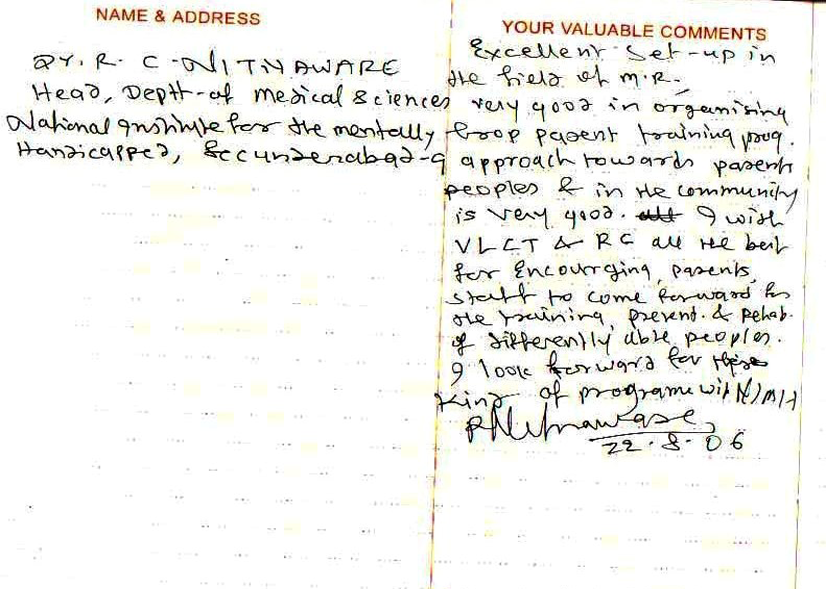 NAME & ADDRESS
Dr. R. C. NITNAWARE
Head, Deptt-of Medical Sciences
National Institute for the mentally
Handicapped, Secunderabad-9
YOUR VALUABLE COMMENTS
Excellent Set-up in
the field of M.R.
very good in organising
parent training prog.
approach towards parents
peoples & in the community
is very good. I wish
VLCT & RC all the best
for Encourging parents,
staff to come forward for
the training, prevent. & Rehab.
of differently able peoples.
I look forward for these
Kind of programe with NIMH
22.8.06